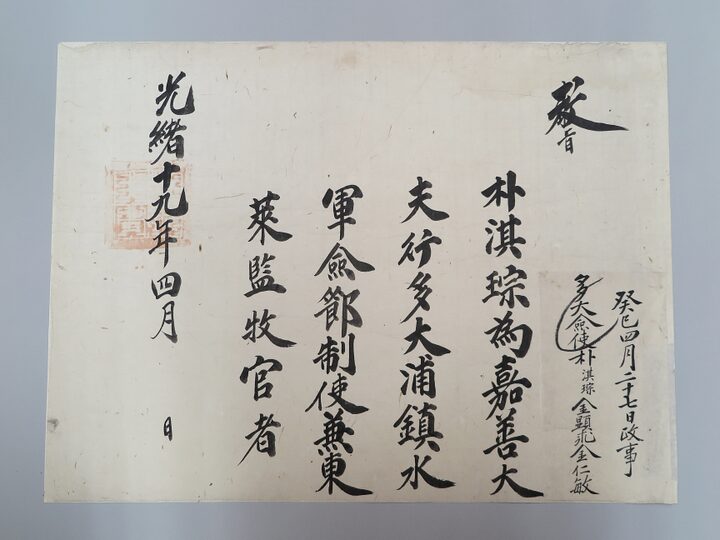 教旨
朴淇琮為嘉善大
夫行多大浦鎮水
軍僉節制使蒹東
萊監牧官者
光緒十九年四月 日
癸巳四月二十七日政事
多大僉使朴淇琮金顯兆金仁敏